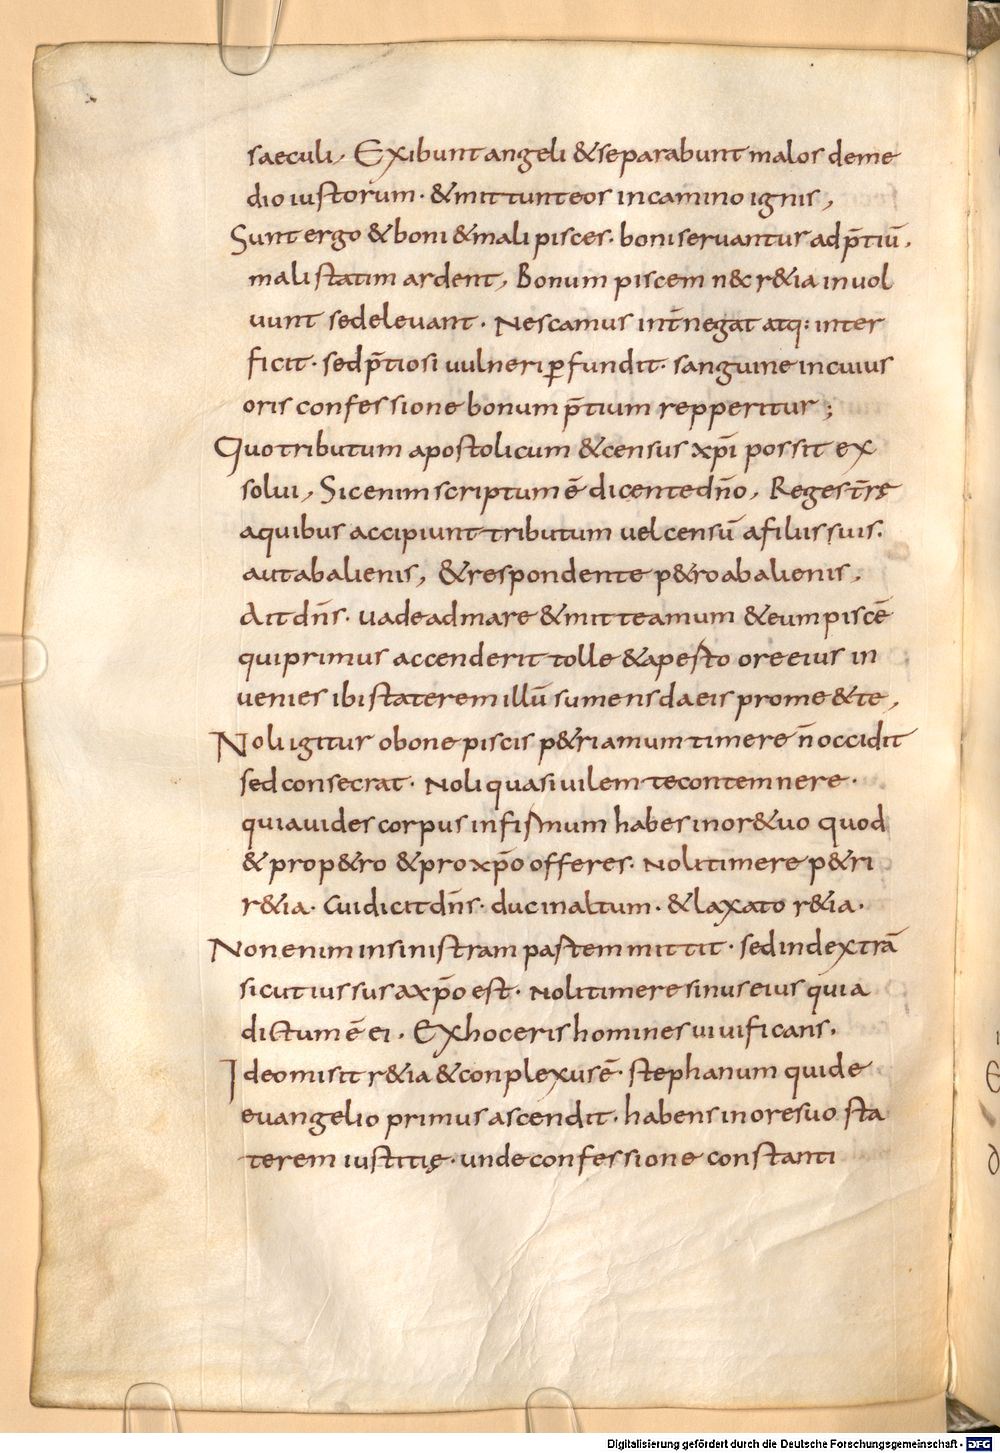 saeculi, Exibunt angeli & separabunt malos deme
dio iustorum · & mittunt eos in camino ignis,
Sunt ergo & boni & mali pisces · boni servantur ad p̄tiū,
mali statim ardent, Bonum piscem nec r&ia invol
vunt sed elevant · Nescamus int̄negat atq: inter
ficit · sed p̄tiosi vulneri ꝑfundit · sanguine in cuius
oris confessione bonum p̄tium repperitur;
Quo tributum apostolicum & census xp̄i possit ex
solui, Sic enim scriptum ē dicente dn̄o, Reges t̄rę
a quibus accipiunt tributum uel censū a filiis suis ·
aut ab alienis, & respondente p&ro ab alienis,
Ait dn̄s · uade ad mare & mitte amum & eum piscē
qui primus accenderit tolle & apesto ore eius in
uenies ibi staterem illū sumens da eis pro me & te,
Noli igitur o bone piscis p&ri amum timere n̄ occidit
sed consecrat · Noli quasi uilem te contemnere ·
quia uides corpus infirmum habes in or& uo quod
& pro p&ro & pro xp̄o offeres · Noli timere p&ri
r&ia · Cui dicit dn̄s · duc in altum · & laxato r&ia ·
Non enim in sinistram pastem mittit · sed in dextrā
sicut iussus a xp̄o est · Noli timere sinus eius quia
dictum ē ei · Ex hoc eris homines uiuificans ·
Ideo misit r&ia & conplexus ē stephanum qui de
evangelio primus ascendit · habens in ore suo sta
terem iustitię · unde confessione constanti
Digitalisierung gefördert durch die Deutsche Forschungsgemeinschaft - DFG